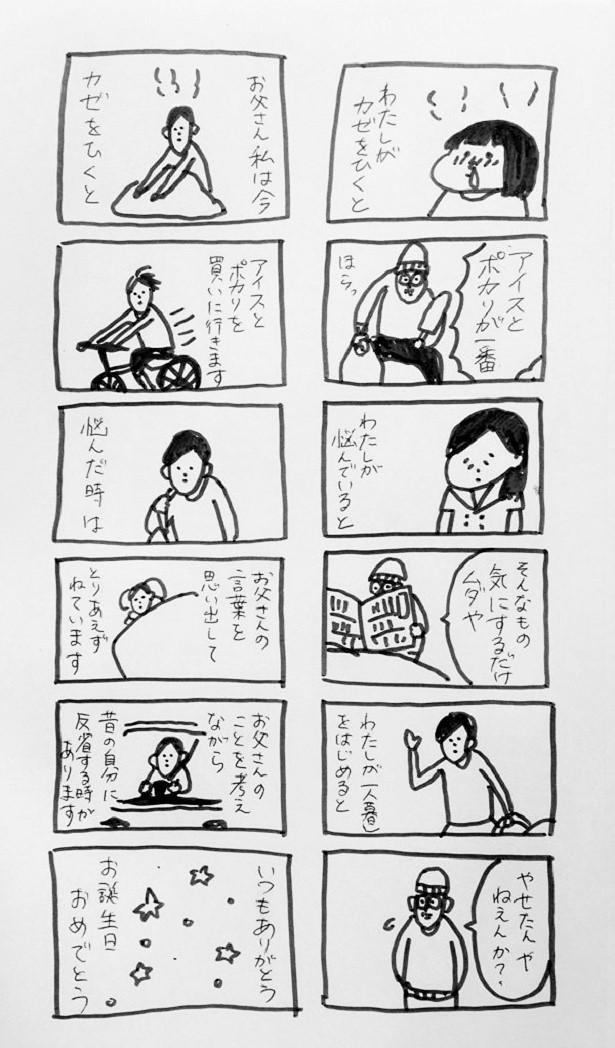 わたしが
カゼをひくと
アイスと
ポカリが一番
ほらっ
わたしが
悩んでいると
そんなもの
気にするだけ
ムダや
わたしが一人暮し
をはじめると
やせたんや
ねえんか?
お父さん私は今
カゼをひくと
アイスと
ポカリを
買いに行きます
悩んだ時は
お父さんの
言葉を
思い出して
とりあえず
ねています
お父さんの
ことを考え
ながら
昔の自分に
反省する時が
あります
いつもありがとう
お誕生日
おめでとう